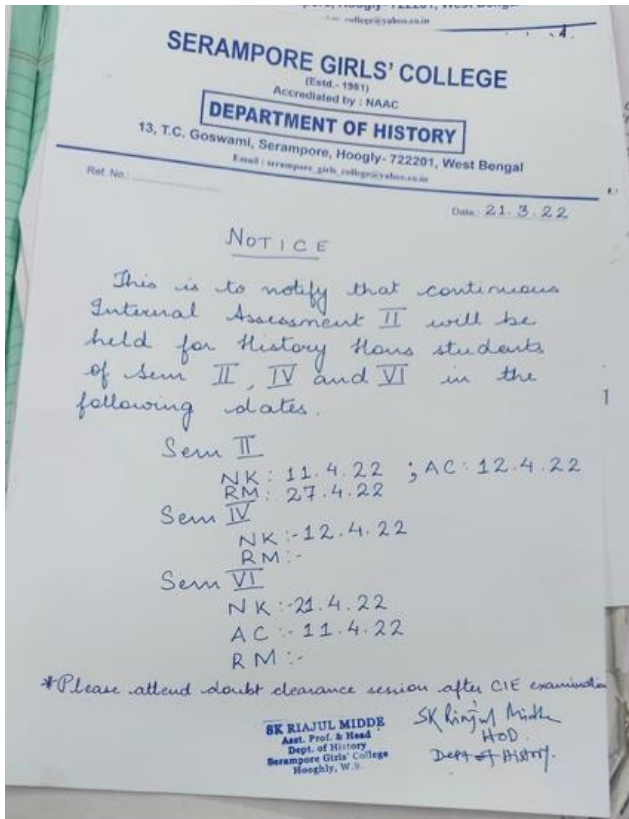 college@yahoo.co.in
SERAMPORE GIRLS' COLLEGE
(Estd.- 1981)
Accrediated by : NAAC
DEPARTMENT OF HISTORY
13, T.C. Goswami, Serampore, Hoogly- 722201, West Bengal
Email : serampore_girls_college@yahoo.co.in
Ref. No.:
Date: 21.3.22
NOTICE
This is to notify that continuous
Internal Assessment II will be
held for History Hons students
of Sem II, IV and VI in the
following dates.
Sem II
NK: 11.4.22 ; AC: 12.4.22
RM: 27.4.22
Sem IV
NK:-12.4.22
RM:-
Sem VI
NK:-21.4.22
AC:-11.4.22
RM:-
*Please attend doubt clearance session after CIE examination
SK RIAJUL MIDDE
Asst. Prof. & Head
Dept. of History
Serampore Girls' College
Hooghly, W.B.
SK Riajul Midde
HOD.
Dept of History.